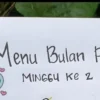 Menu Bulan
MINGGU KE 2